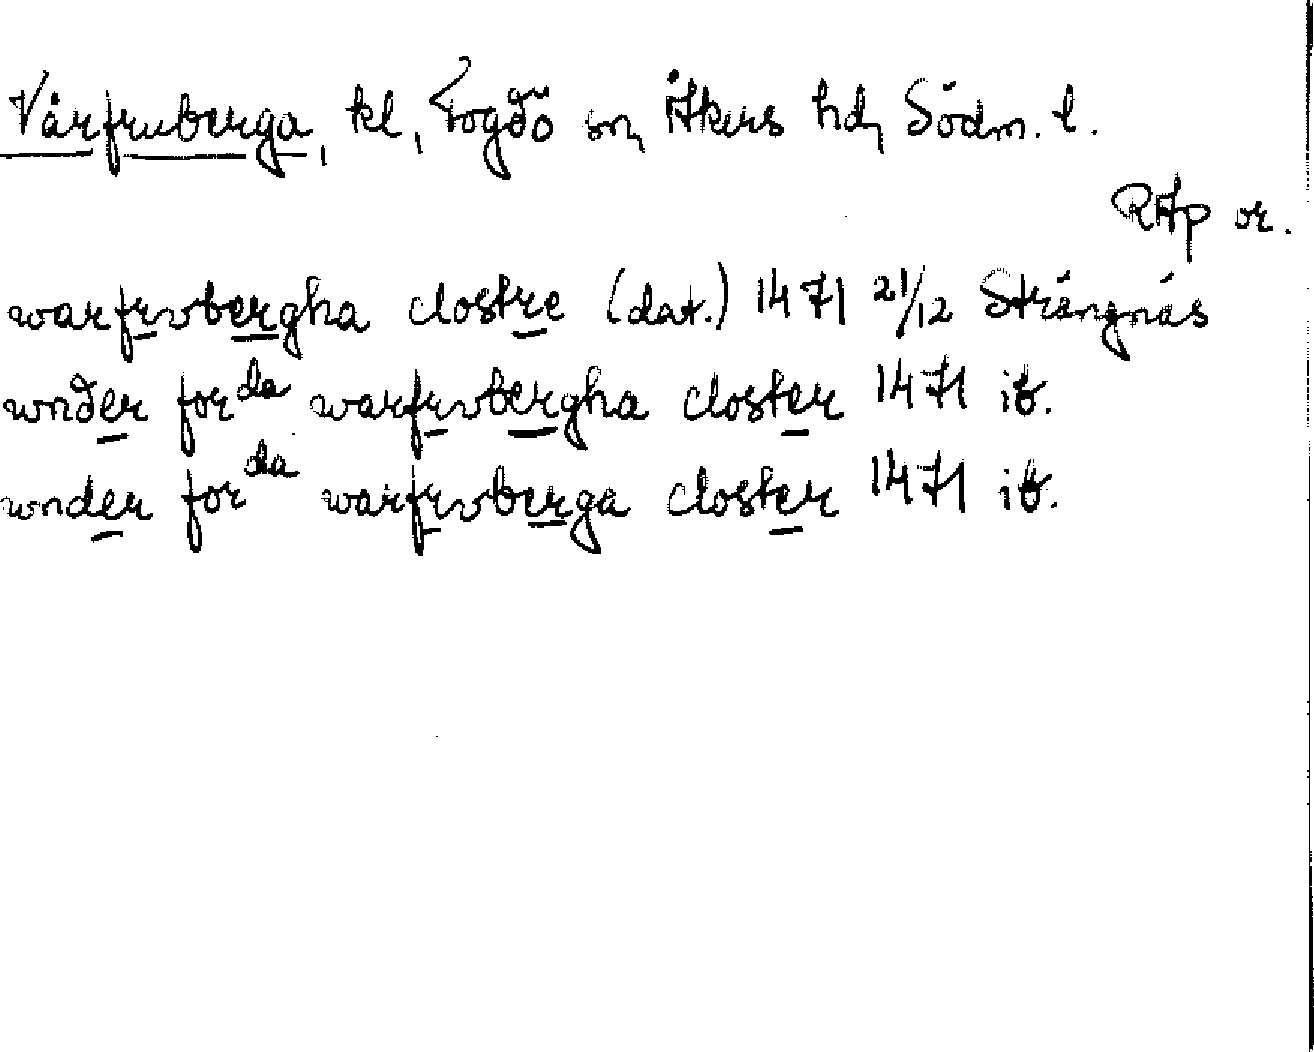 Vårfruberga, kl, Fogdö sn, Åkers hd, Södm. l.
RAp or.
warfrvbergha clostre (dat.) 1471 21/12 Strängnäs
wnder for da warfrvbergha closter 1471 ib.
wnder for da warfrvberga closter 1471 ib.